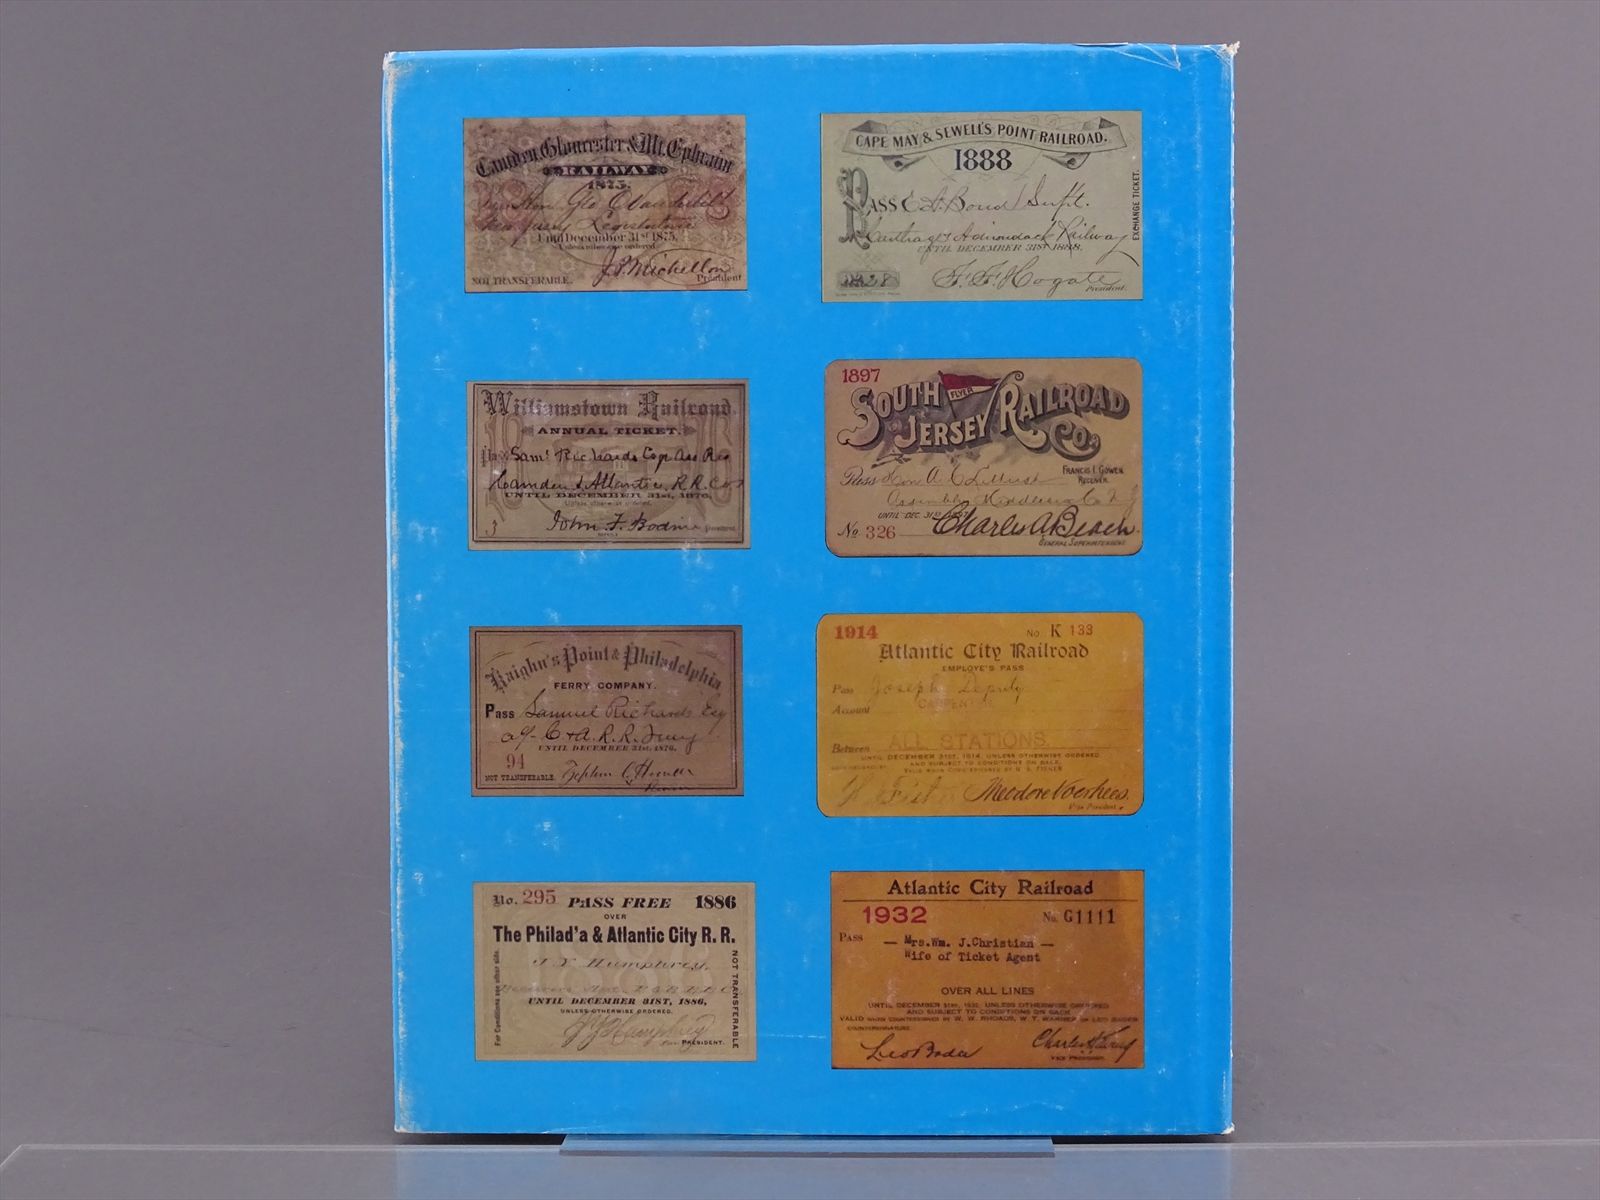 Camden, Gloucester & Mt. Ephraim
RAILWAY
1875.
Until December 31st 1875.
Unless otherwise ordered
J.P. Michellon
NOT TRANSFERABLE.
President
CAPE MAY & SEWELL'S POINT RAILROAD.
1888
PASS E. A. Bond Supt.
Carthage & Adirondack Railway
UNTIL DECEMBER 31ST 1888.
F. F. Hogate
President.
EXCHANGE TICKET.
Williamstown Railroad.
ANNUAL TICKET.
Pass Saml Richards Esqr
Camden & Atlantic R.R. Co
UNTIL DECEMBER 31st, 1876,
Unless otherwise ordered.
3 John F. Bodine President
1897
SOUTH JERSEY RAILROAD Co.
FLYER
FRANCIS I. GOWEN
RECEIVER.
Pass Hon A C
Assembly Middlesex Co N J
UNTIL DEC. 31ST 1897
No. 326 Charles A Beach.
GENERAL SUPERINTENDENT
Kaighn's Point & Philadelphia
FERRY COMPANY.
Pass Samuel Richards Esq
C & A. R. R.
UNTIL DECEMBER 31st, 1876.
94
NOT TRANSFERABLE.
1914 No. K 133
Atlantic City Railroad
EMPLOYE'S PASS
Pass Joseph Deputy
Account CARPENTER
Between ALL STATIONS.
UNTIL DECEMBER 31ST, 1914, UNLESS OTHERWISE ORDERED
AND SUBJECT TO CONDITIONS ON BACK.
Theodore Voorhees.
Vice President.
No. 295 PASS FREE 1886
OVER
The Philad'a & Atlantic City R. R.
UNTIL DECEMBER 31ST, 1886,
UNLESS OTHERWISE ORDERED.
PRESIDENT.
For Conditions see other side.
NOT TRANSFERABLE
Atlantic City Railroad
1932 No. G1111
PASS — Mrs. Wm. J. Christian —
Wife of Ticket Agent
OVER ALL LINES
UNTIL DECEMBER 31ST, 1932, UNLESS OTHERWISE ORDERED
AND SUBJECT TO CONDITIONS ON BACK
COUNTERSIGNATURE
VICE PRESIDENT.